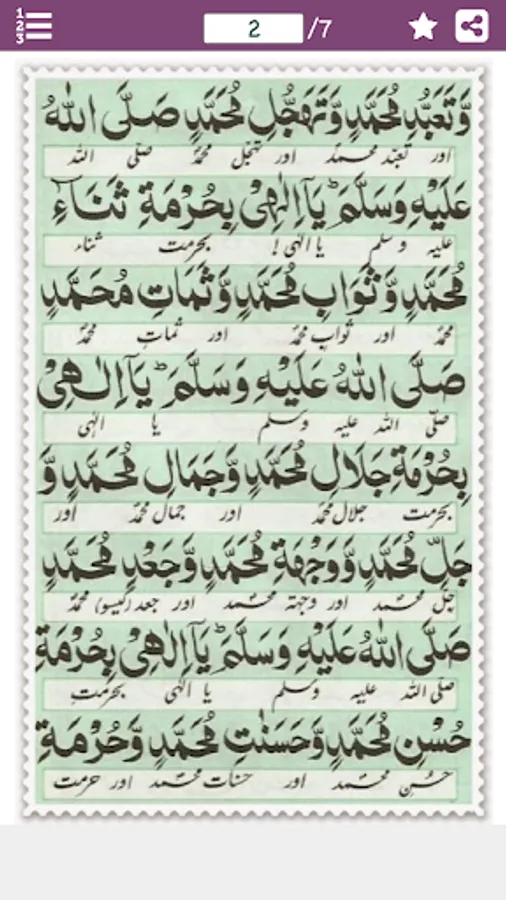 2 /7
وَّتَعَبُّدِ مُحَمَّدٍ وَّتَهَجُّلِ مُحَمَّدٍ صَلَّى اللهُ
اور تعبّد محمدؐ اور تہجّل محمدؐ صلّی اللہ
عَلَيْهِ وَسَلَّمَ ؕ يَآ اِلٰهِيْ بِحُرْمَةِ ثَنَآءِ
علیہ وسلم یا الٰہی! بحرمت ثناء
مُحَمَّدٍ وَّثَوَابِ مُحَمَّدٍ وَّثَمَاتِ مُحَمَّدٍ
محمدؐ اور ثوابِ محمدؐ اور ثماتِ محمدؐ
صَلَّى اللهُ عَلَيْهِ وَسَلَّمَ ؕ يَآ اِلٰهِيْ
صلّی اللہ علیہ وسلم یا الٰہی
بِحُرْمَةِ جَلَالِ مُحَمَّدٍ وَّجَمَالِ مُحَمَّدٍ وَّ
بحرمت جلال محمدؐ اور جمال محمدؐ اور
جَلِّ مُحَمَّدٍ وَّوَجْهَةِ مُحَمَّدٍ وَّجَعْدِ مُحَمَّدٍ
جلّ محمدؐ اور وجہتہ محمدؐ اور جعد (گیسو) محمدؐ
صَلَّى اللهُ عَلَيْهِ وَسَلَّمَ ؕ يَآ اِلٰهِيْ بِحُرْمَةِ
صلّی اللہ علیہ وسلم یا الٰہی بحرمتِ
حُسْنِ مُحَمَّدٍ وَّحَسَنٰتِ مُحَمَّدٍ وَّحُرْمَةِ
حسنِ محمدؐ اور حسنات محمدؐ اور حرمت